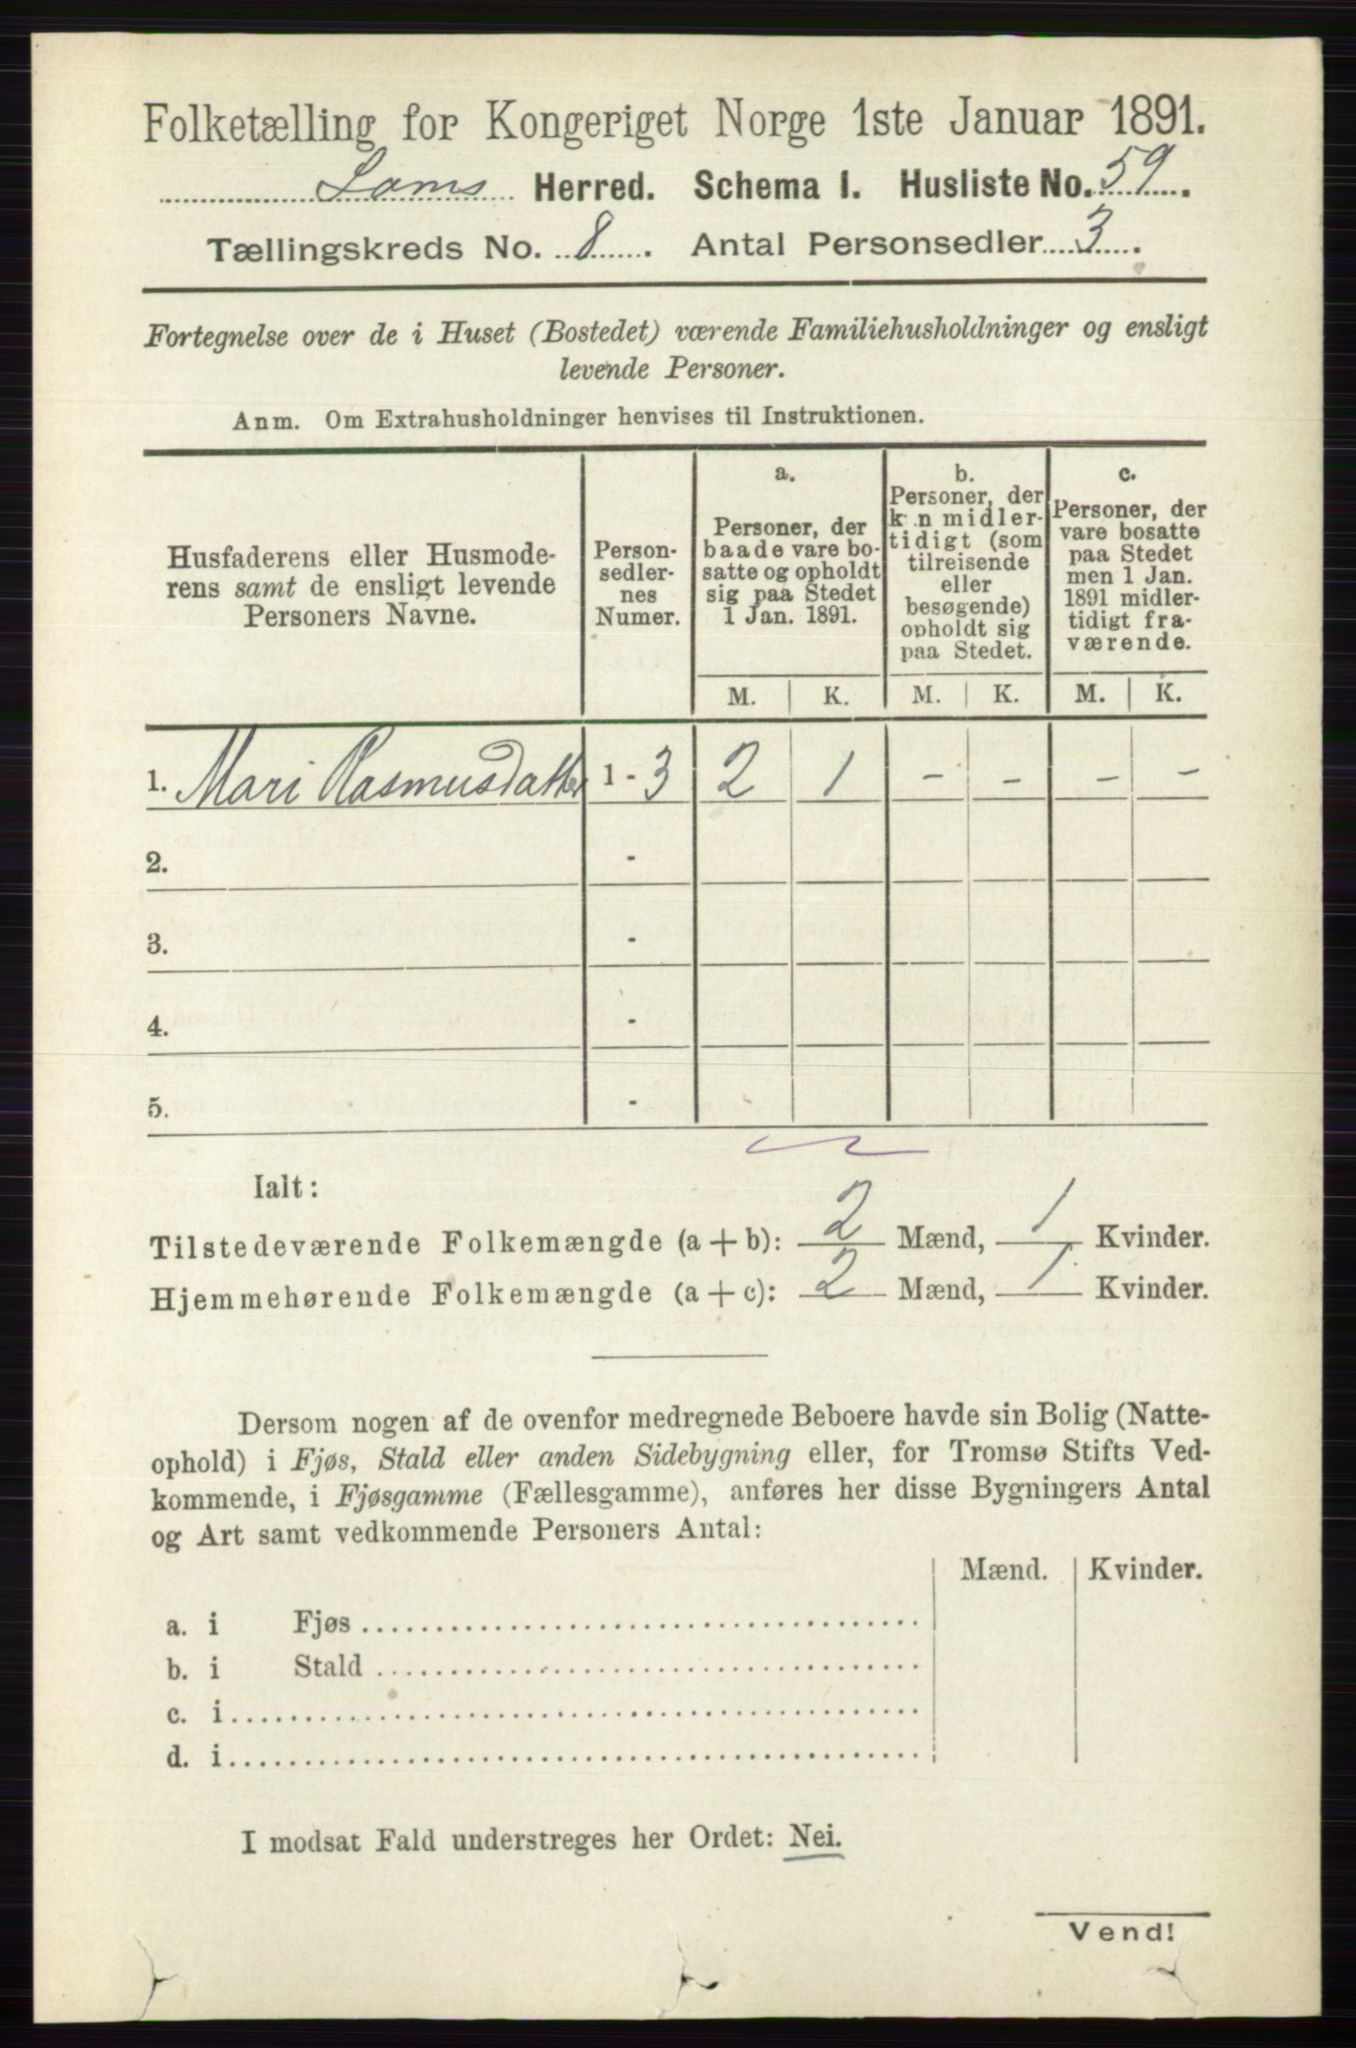 Folketælling for Kongeriget Norge 1ste Januar 1891.
Loms Herred. Schema I. Husliste No. 59.
Tællingskreds No. 8. Antal Personsedler 3.
Fortegnelse over de i Huset (Bostedet) værende Familiehusholdninger og ensligt
levende Personer.
Anm. Om Extrahusholdninger henvises til Instruktionen.
Husfaderens eller Husmode-
rens samt de ensligt levende
Personers Navne.
Person-
sedler-
nes
Numer.
a.
Personer, der
baade vare bo-
satte og opholdt
sig paa Stedet
1 Jan. 1891.
b.
Personer, der
kun midler-
tidigt (som
tilreisende
eller
besøgende)
opholdt sig
paa Stedet.
c.
Personer, der
vare bosatte
paa Stedet
men 1 Jan.
1891 midler-
tidigt fra-
værende.
M. K. M. K. M. K.
1. Mari Rasmusdatter 1 - 3 2 1 - - - -
2. -
3. -
4. -
5. -
Ialt:
Tilstedeværende Folkemængde (a + b): 2 Mænd, 1 Kvinder.
Hjemmehørende Folkemængde (a + c): 2 Mænd, 1 Kvinder.
Dersom nogen af de ovenfor medregnede Beboere havde sin Bolig (Natte-
ophold) i Fjøs, Stald eller anden Sidebygning eller, for Tromsø Stifts Ved-
kommende, i Fjøsgamme (Fællesgamme), anføres her disse Bygningers Antal
og Art samt vedkommende Personers Antal:
Mænd. Kvinder.
a. i Fjøs
b. i Stald
c. i
d. i
I modsat Fald understreges her Ordet: Nei.
Vend!